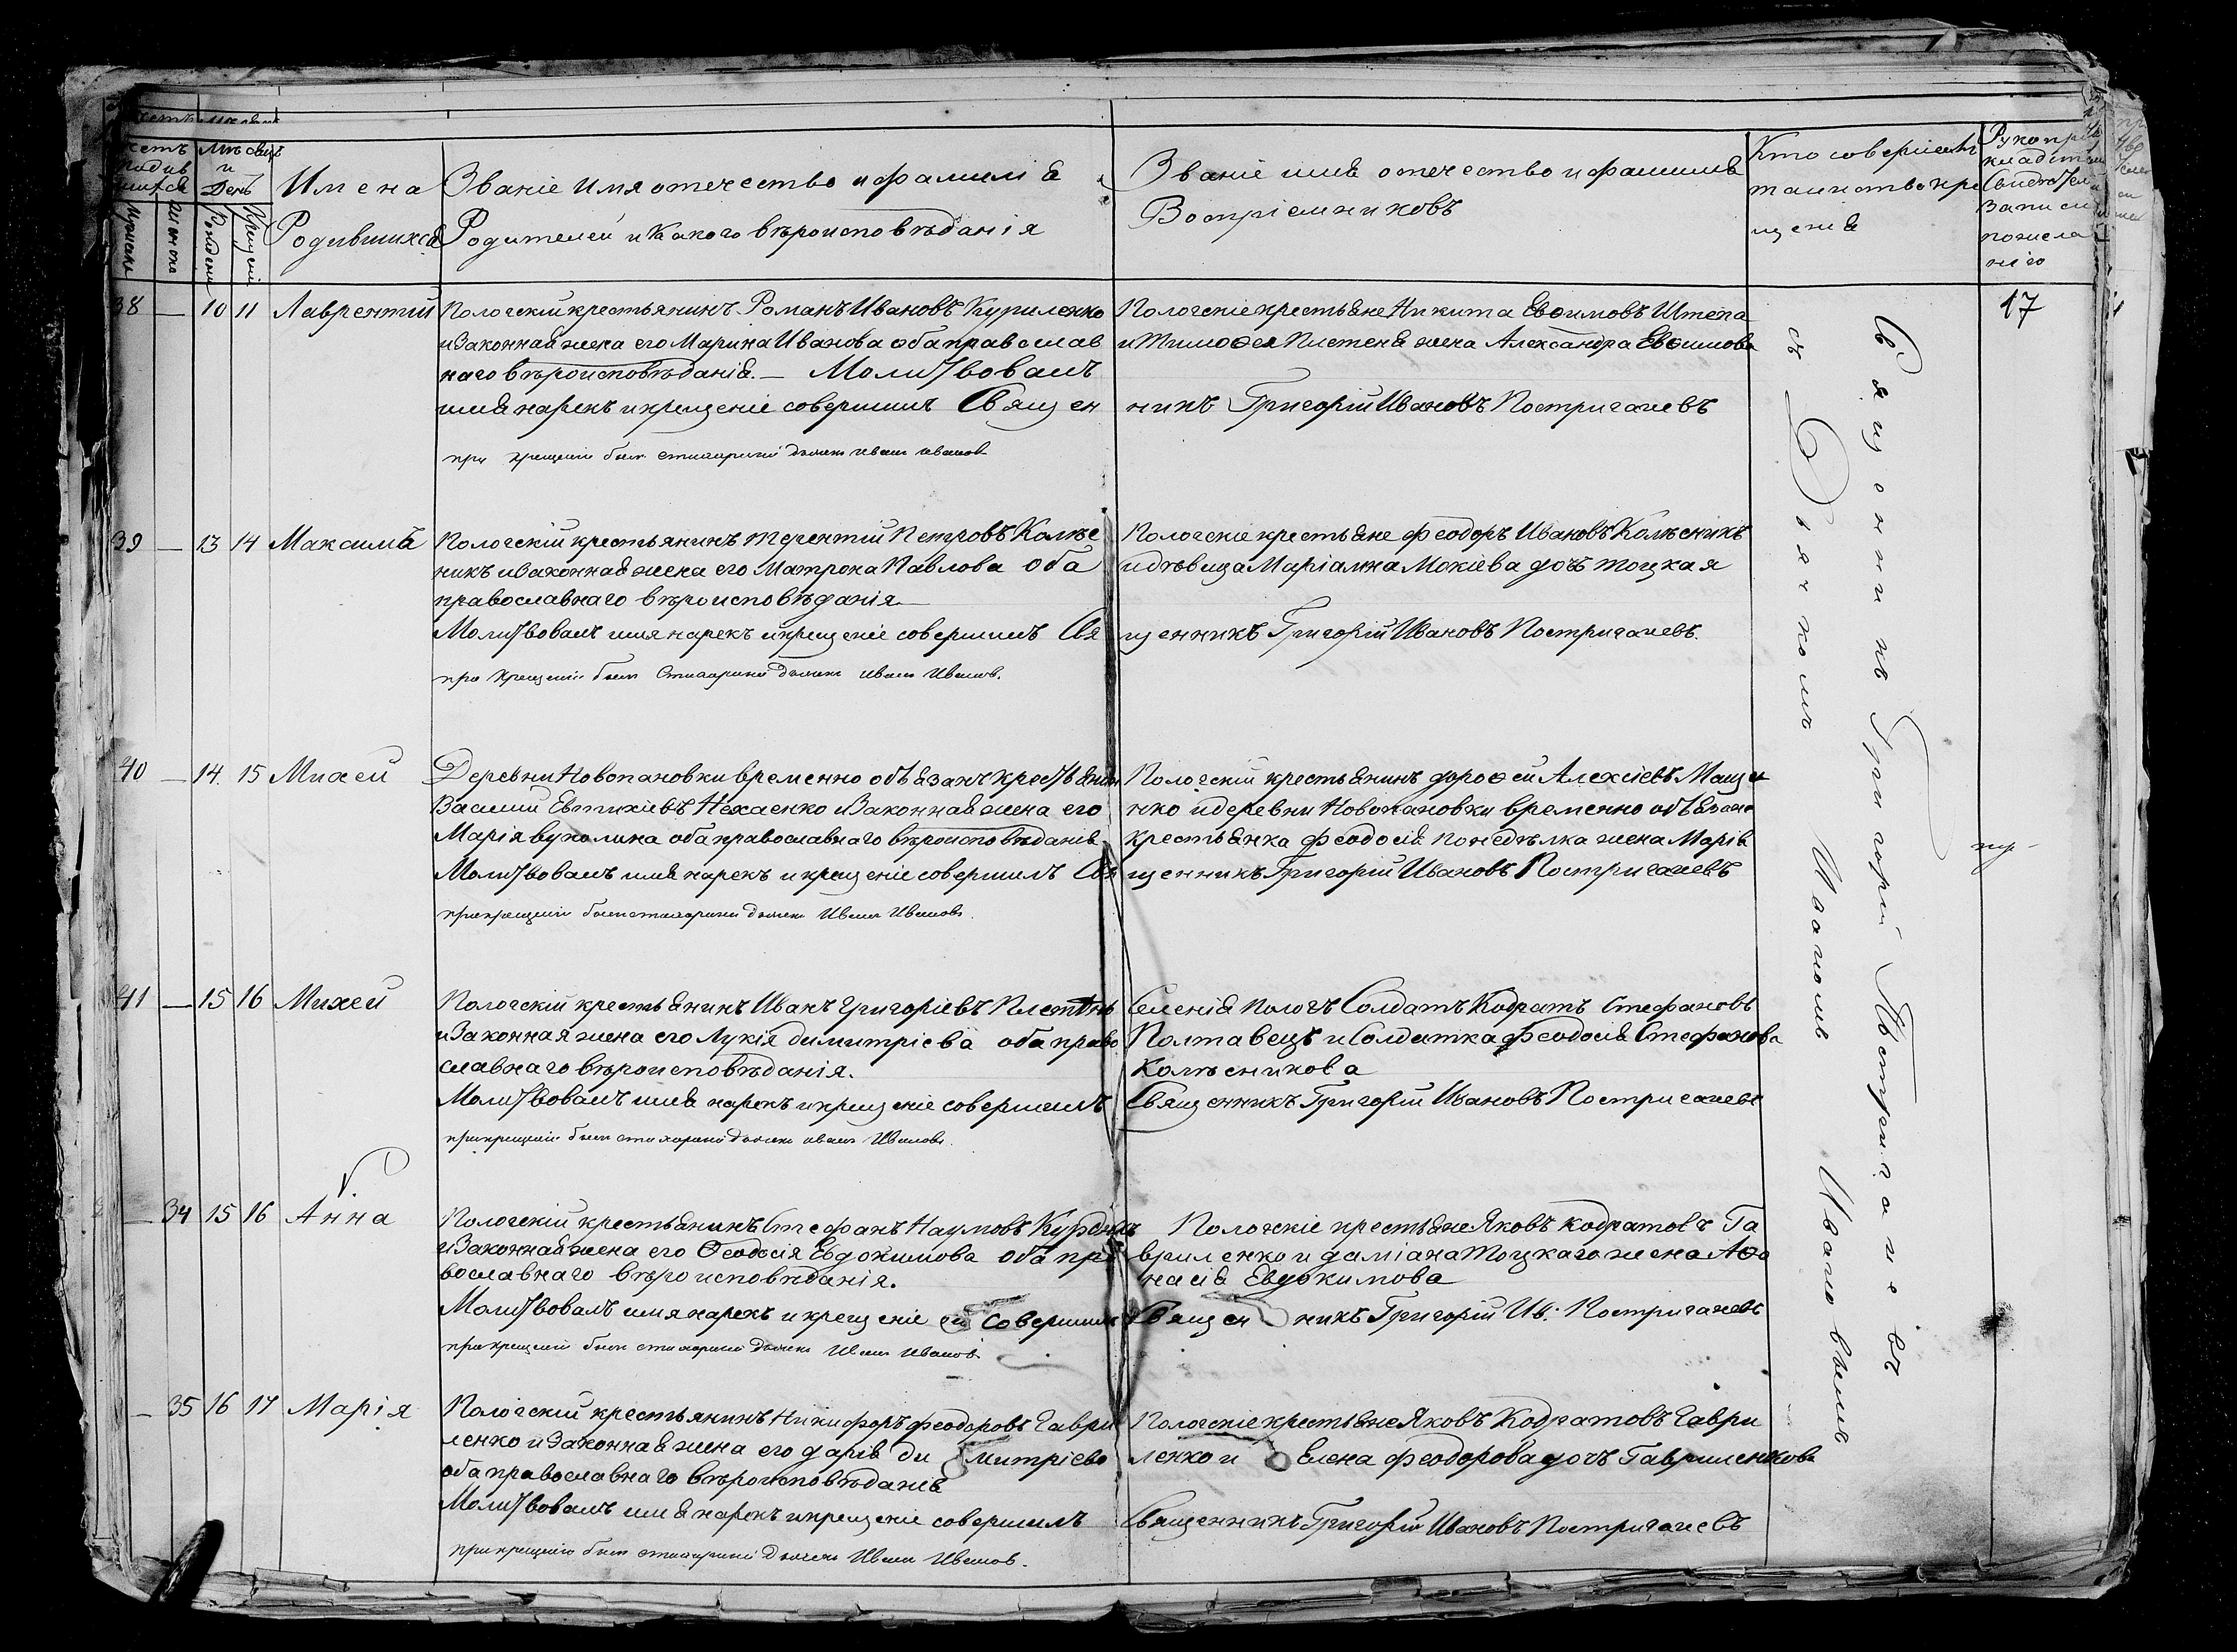 Мѣсяцъ
и
День
Имена
Родившихся
Званіе имя отечество и фамилія
Родителей и какого вѣроисповѣданія
Званіе имя отечество и фамилія
Воспріемниковъ
Кто совершалъ
таинство кре
щенія
Рукопри
Записи
по жела
нію
38 — 10 11 Лаврентій
Пологскій крестьянинъ Романъ Ивановъ Куриленко
и законная жена его Марина Иванова оба православ
наго вѣроисповѣданія. — Молитвовалъ
имя нарекъ и крещеніе совершилъ Священ
при крещеніи былъ стихарный дьячекъ Иванъ Ивановъ
Пологскіе крестьяне Никита Евѳимовъ Штепа
и Тимоѳея Плетеня жена Александра Евѳимова
никъ Григорій Ивановъ Постригачевъ
17
39 — 13 14 Максимъ
Пологскій крестьянинъ Терентій Петровъ Колѣс
никъ и законная жена его Матрона Павлова оба
православнаго вѣроисповѣданія
Молитвовалъ имя нарекъ и крещеніе совершилъ Свя
при крещеніи былъ стихарный дьячекъ Иванъ Ивановъ.
Пологскіе крестьяне Феодоръ Ивановъ Колѣсникъ
и дѣвица Маріамна Мокіева дочь Тоцкая
щенникъ Григорій Ивановъ Постригачевъ.
40 — 14. 15 Михей
Деревни Новопановки временно обязанъ крестьянинъ
Василій Евтихіевъ Нехаенко и законная жена его
Марія Вуколина оба православнаго вѣроисповѣданія
Молитвовалъ имя нарекъ и крещеніе совершилъ Свя
при крещеніи былъ стихарный дьячекъ Иванъ Ивановъ.
Пологскій крестьянинъ Дороѳей Алексіевъ Маще
нко и деревни Новопановки временно обязана
крестьянка Феодосія Понедѣлка жена Марія
щенникъ Григорій Ивановъ Постригачевъ
41 — 15 16 Михей
Пологскій крестьянинъ Иванъ Григоріевъ Плетѣнь
и законная жена его Лукія Димитріева оба право
славнаго вѣроисповѣданія.
Молитвовалъ имя нарекъ и крещеніе совершилъ
при крещеніи былъ стихарный дьячекъ Иванъ Ивановъ.
Селенія Пологъ Солдатъ Кодратъ Стефановъ
Полтавецъ и Солдатка Феодосія Стефанова
Колѣсникова
Священникъ Григорій Ивановъ Постригачевъ
— 34 15 16 Анна
Пологскій крестьянинъ Стефанъ Наумовъ
и законная жена его Ѳеодосія Евдокимова оба пра
вославнаго вѣроисповѣданія.
Молитвовалъ имя нарекъ и крещеніе совершилъ
при крещеніи былъ стихарный дьячекъ Иванъ Ивановъ
Пологскіе крестьяне Яковъ Кодратовъ Га
вриленко и Даміана Тоцкаго жена Аѳа
насія Евдокимова
Священникъ Григорій Ив: Постригачевъ
— 35 16 17 Марія
Пологскій крестьянинъ Никифоръ Феодоровъ Гаври
ленко и законная жена его Дарія Димитріева
оба православнаго вѣроисповѣданія
Молитвовалъ имя нарекъ и крещеніе совершилъ
при крещеніи былъ стихарный дьячекъ Иванъ Ивановъ.
Пологскіе крестьяне Яковъ Кодратовъ Гаври
ленко и Елена Феодорова дочь Гавриленкова
Священникъ Григорій Ивановъ Постригачевъ
Священникъ Григорій Постригачевъ
съ Дьячкомъ Иваномъ Ивановымъ